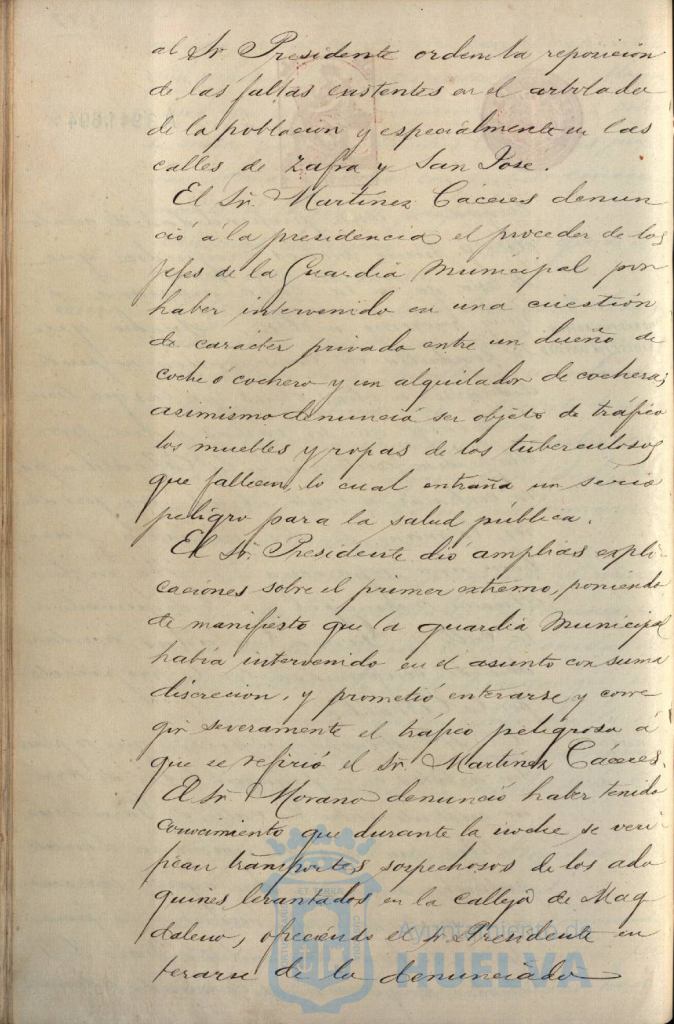 al Sr. Presidente ordene la reposición
de las faltas existentes en el arbolado
de la población y especialmente en las
calles de Zafra y San José.
El Sr. Martínez Cáceres denun
ció á la presidencia el proceder de los
Jefes de la Guardia Municipal por
haber intervenido en una cuestión
de carácter privado entre un dueño de
coche ó cochero y un alquilador de cochera;
asimismo denunció ser objeto de tráfico
los muebles y ropas de los tuberculosos
que fallecen, lo cual entraña un serio
peligro para la salud pública.
El Sr. Presidente dió amplias expli-
caciones sobre el primer extremo, poniendo
de manifiesto que la guardia Municipal
había intervenido en el asunto con suma
discrecion, y prometió enterarse y corre
gir severamente el tráfico peligroso á
que se refirió el Sr. Martínez Cáceres.
El Sr. Morano denunció haber tenido
conocimiento que durante la noche se veri-
fican transportes sospechosos de los ado
quines levantados en la calleja de Mag
daleno, ofreciendo el Sr. Presidente en
terarse de lo denunciado
Ayuntamiento de
HUELVA